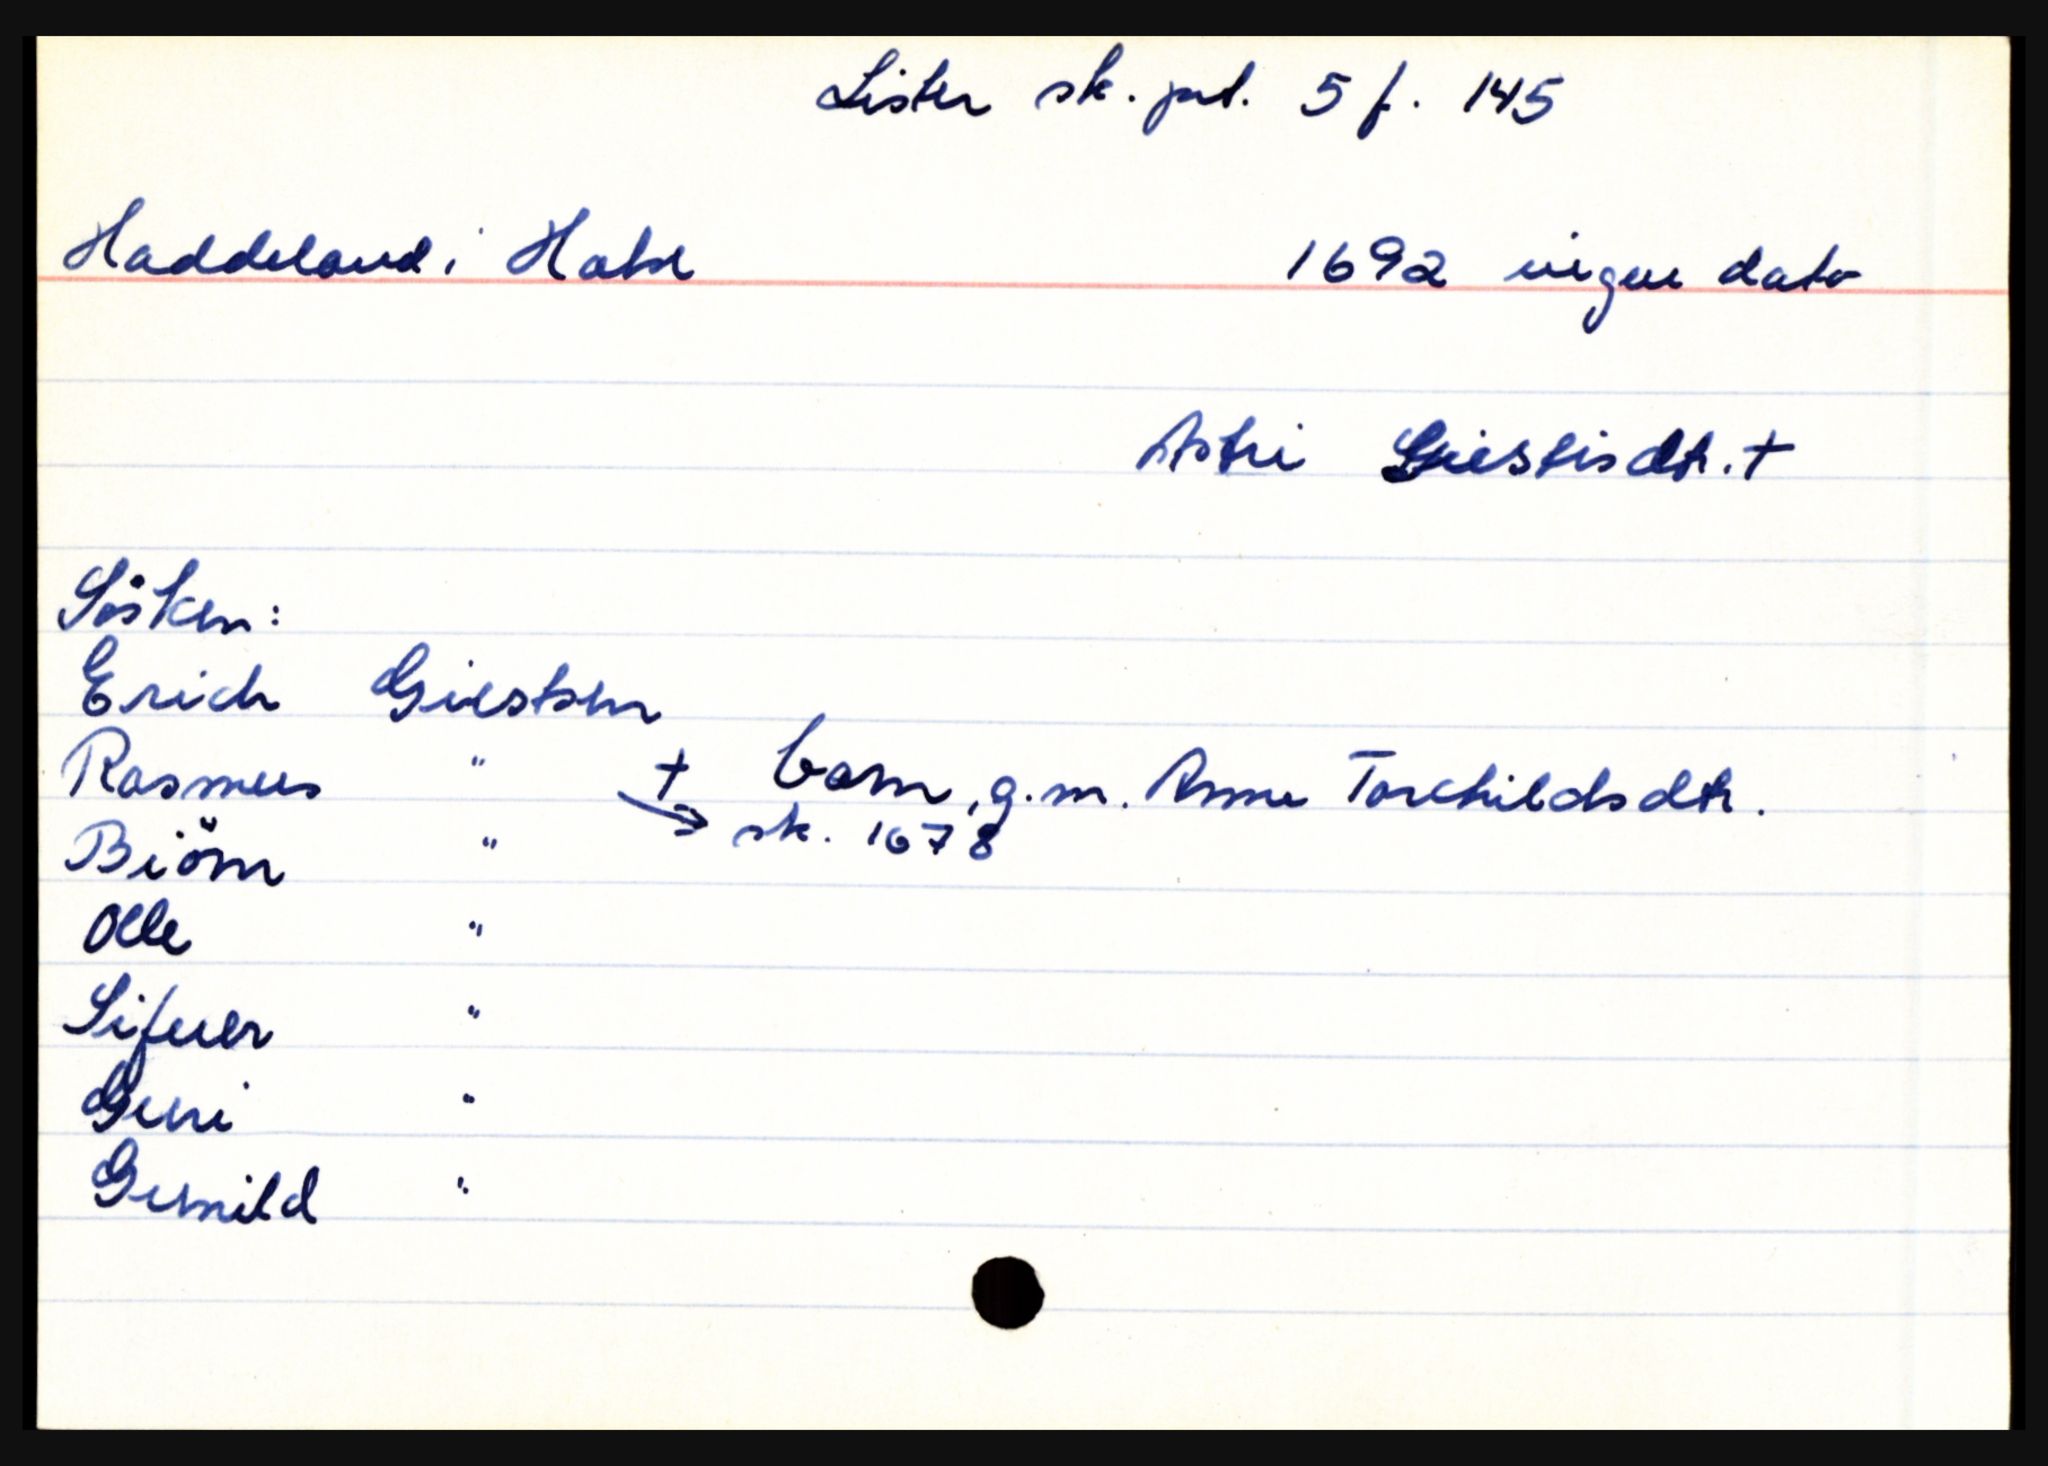 Lister sk. prt. 5 f. 145
Haddeland i Halse 1692 ingen dato
Astri Giestsdtr. +
Sösken:
Erich Giestsen
Rasmus " + barn, g.m. Anne Torchildsdtr.
sk. 1678
Biörn "
Olle "
Sifuer "
Guri "
Gunild "